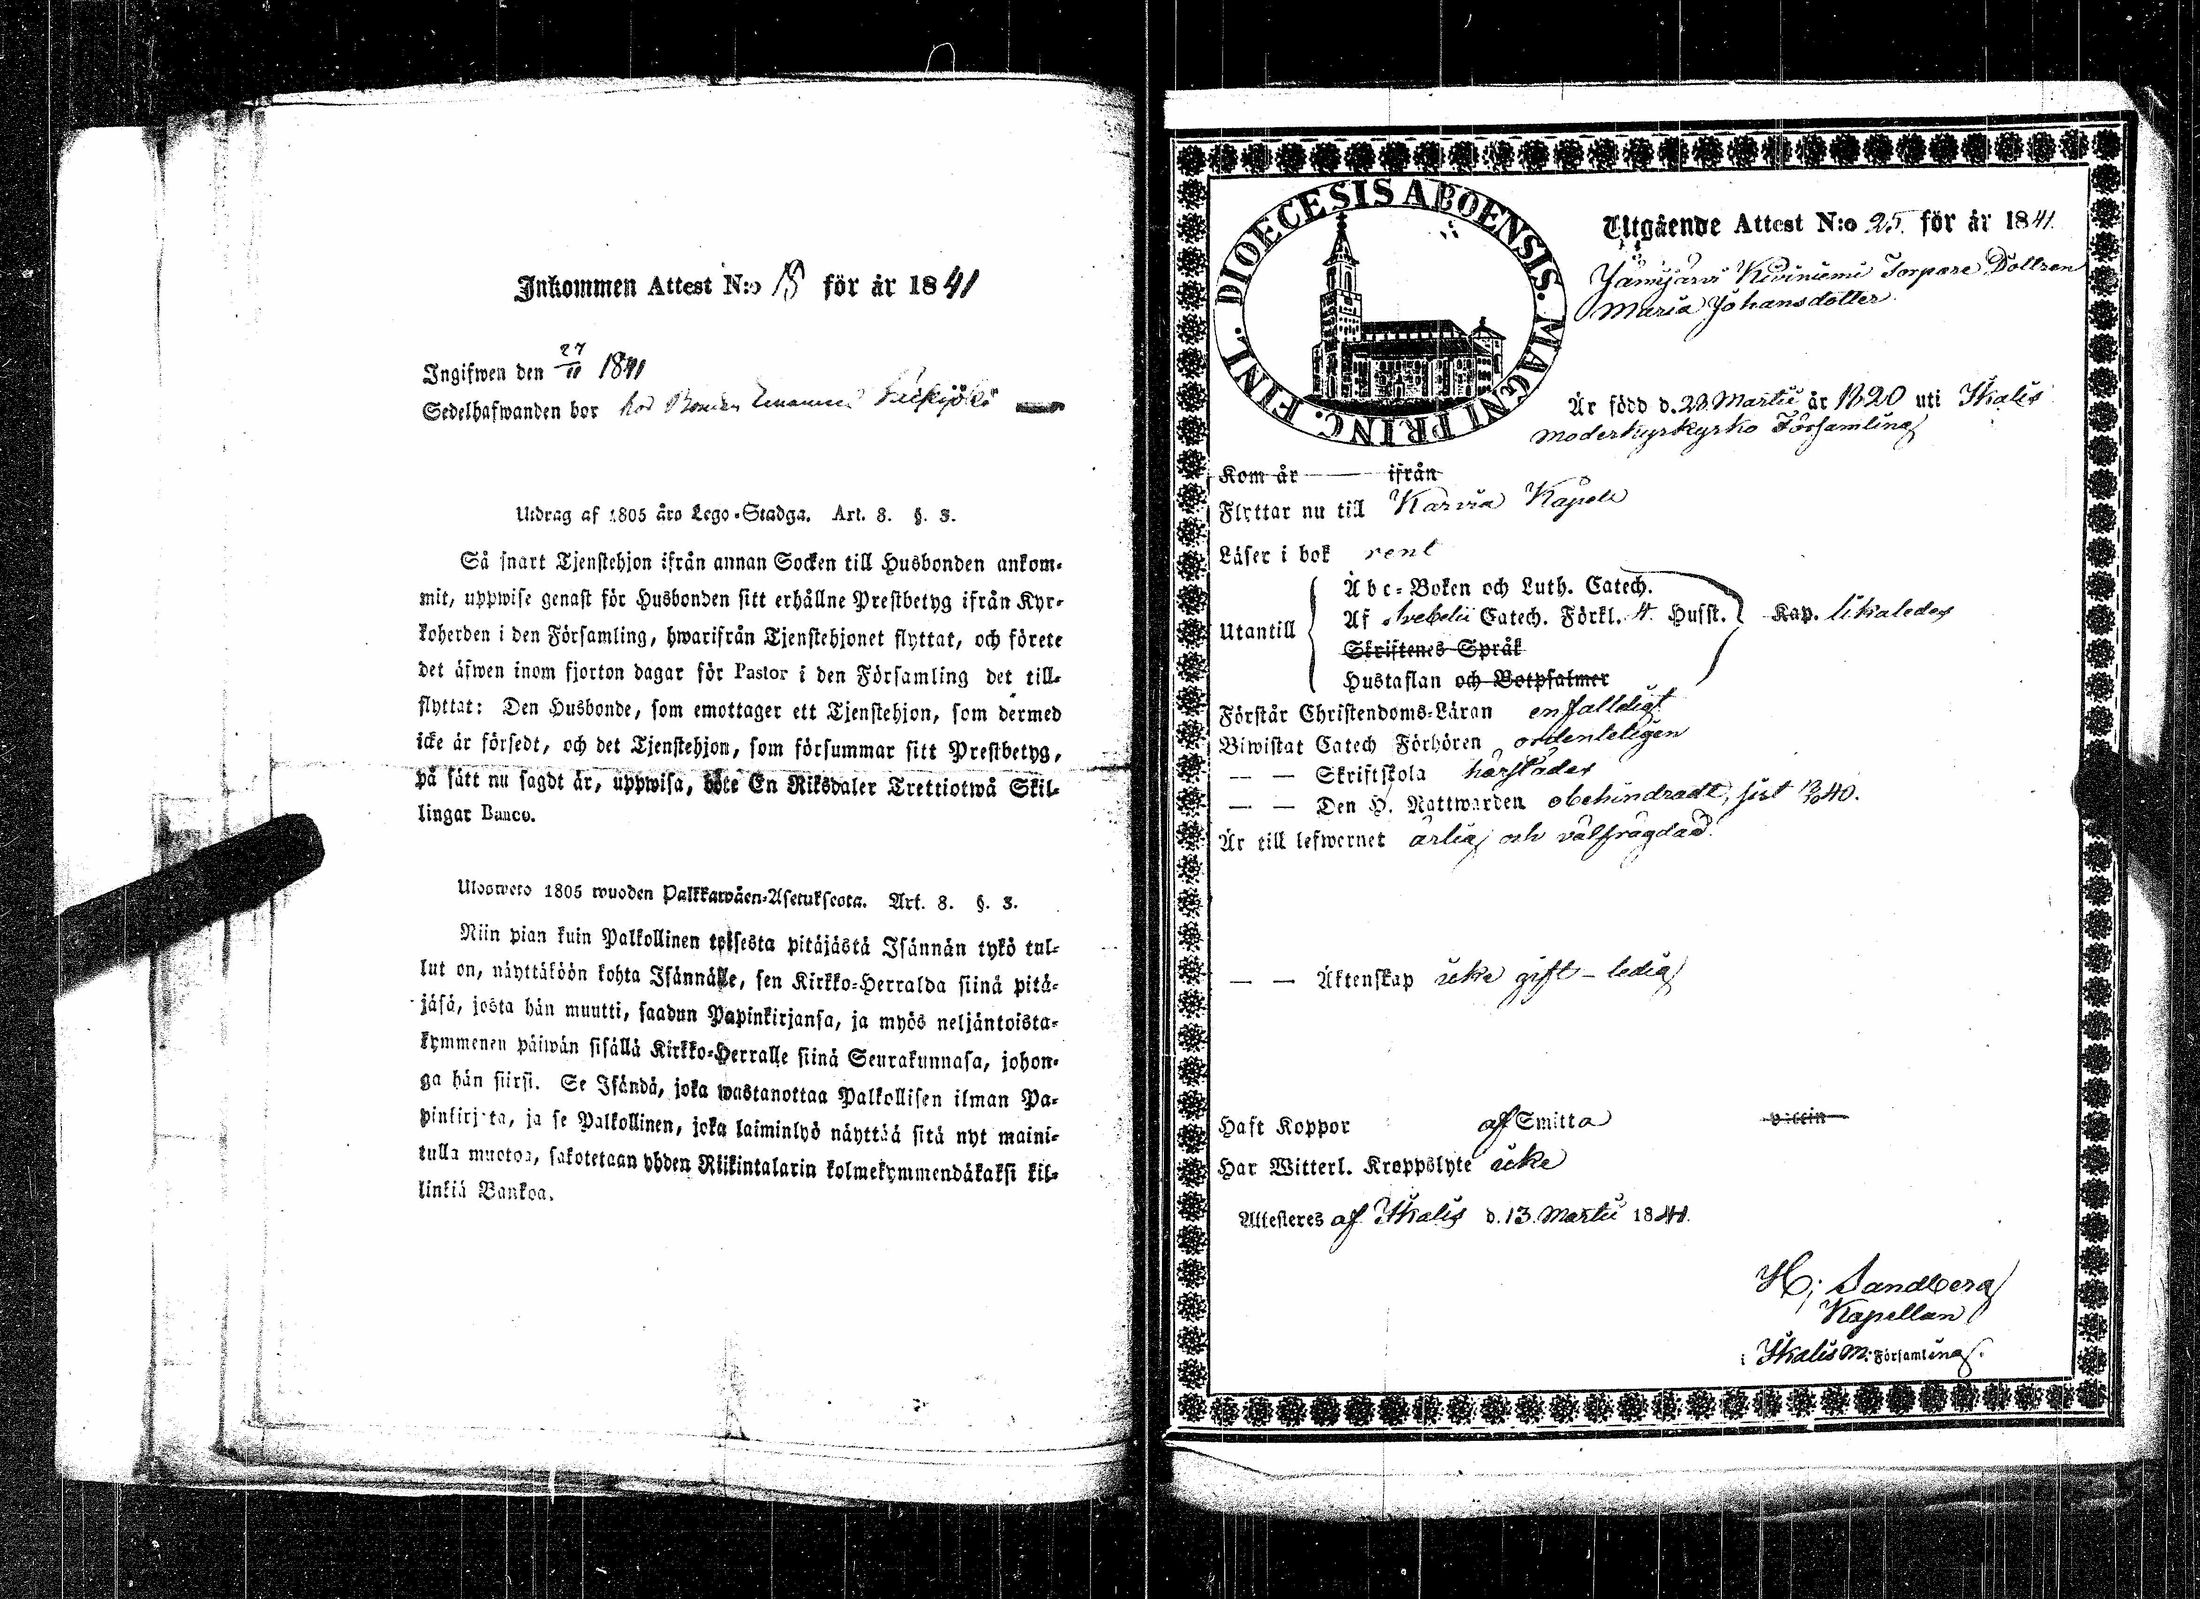 Inkommen Attest N:o 15 för år 1841
Ingifwen den 27/11 1841
Sedelhafwanden bor hos Bonden Emanuel
Utdrag af 1805 års Lego-Stadga. Art. 8. §. 3.
Så snart Tjenstehjon ifrån annan Socken till Husbonden ankom-
mit, uppwise genast för Husbonden sitt erhållne Prestbetyg ifrån Kyr-
koherden i den Församling, hwarifrån Tjenstehjonet flyttat, och förete
det äfwen inom fjorton dagar för Pastor i den Församling det till-
flyttat: Den Husbonde, som emottager ett Tjenstehjon, som dermed
icke är försedt, och det Tjenstehjon, som försummar sitt Prestbetyg,
på sätt nu sagdt är, uppwisa, böte En Riksdaler Trettiotwå Skil-
lingar Banco.
Ulosweto 1805 wuoden Palkkawäen-Asetuksesta. Art. 8. §. 3.
Niin pian kuin Palkollinen toisesta pitäjästä Isännän tykö tul-
lut on, näyttäköön kohta Isännälle, sen Kirkko-Herralda siinä pitä-
jäsä, josta hän muutti, saadun Papinkirjansa, ja myös neljäntoista-
kymmenen päiwän sisällä Kirkko-Herralle siinä Seurakunnasa, johon-
ga hän siirsi. Se Isändä, joka wastanottaa Palkollisen ilman Pa-
pinkirjata, ja se Palkollinen, joka laiminlyö näyttää sitä nyt maini-
tulla muotoa, sakotetaan yhden Riikintalarin kolmekymmendäkaksi kil-
linkiä Bankoa.
DIOECESIS ABOENSIS. MAGNI PRINC. FINL.
Utgående Attest N:o 25 för år 1841.
Jämijärvi Kiviniemi Torpare Dottren
Maria Johansdotter
Är född d. 22. Martii år 1820 uti Ikalis
Moderkyrkyrko Församling
Kom år ifrån
Flyttar nu till Karvia Kapell
Läser i bok rent
Utantill
Abc-Boken och Luth. Catech.
Af Svebelii Catech. Förkl. 4. Husst. Kap. likaledes
Skriftenes Språk
Hustaflan och Botpsalmer
Förstår Christendoms-Läran enfalldigt
Biwistat Catech Förhören ordenteligen
— — Skriftskola härstädes
— — Den H. Nattwarden obehindradt, sist
Är till lefwernet ärlig och välfrägdad.
— — Äktenskap icke gift - ledig
Haft Koppor af Smitta
Har Witterl. Kroppslyte icke
Attesteres af Ikalis d. 13. Martii 1841.
H; Sandberg
Kapellan
i Ikalis M: Församling.